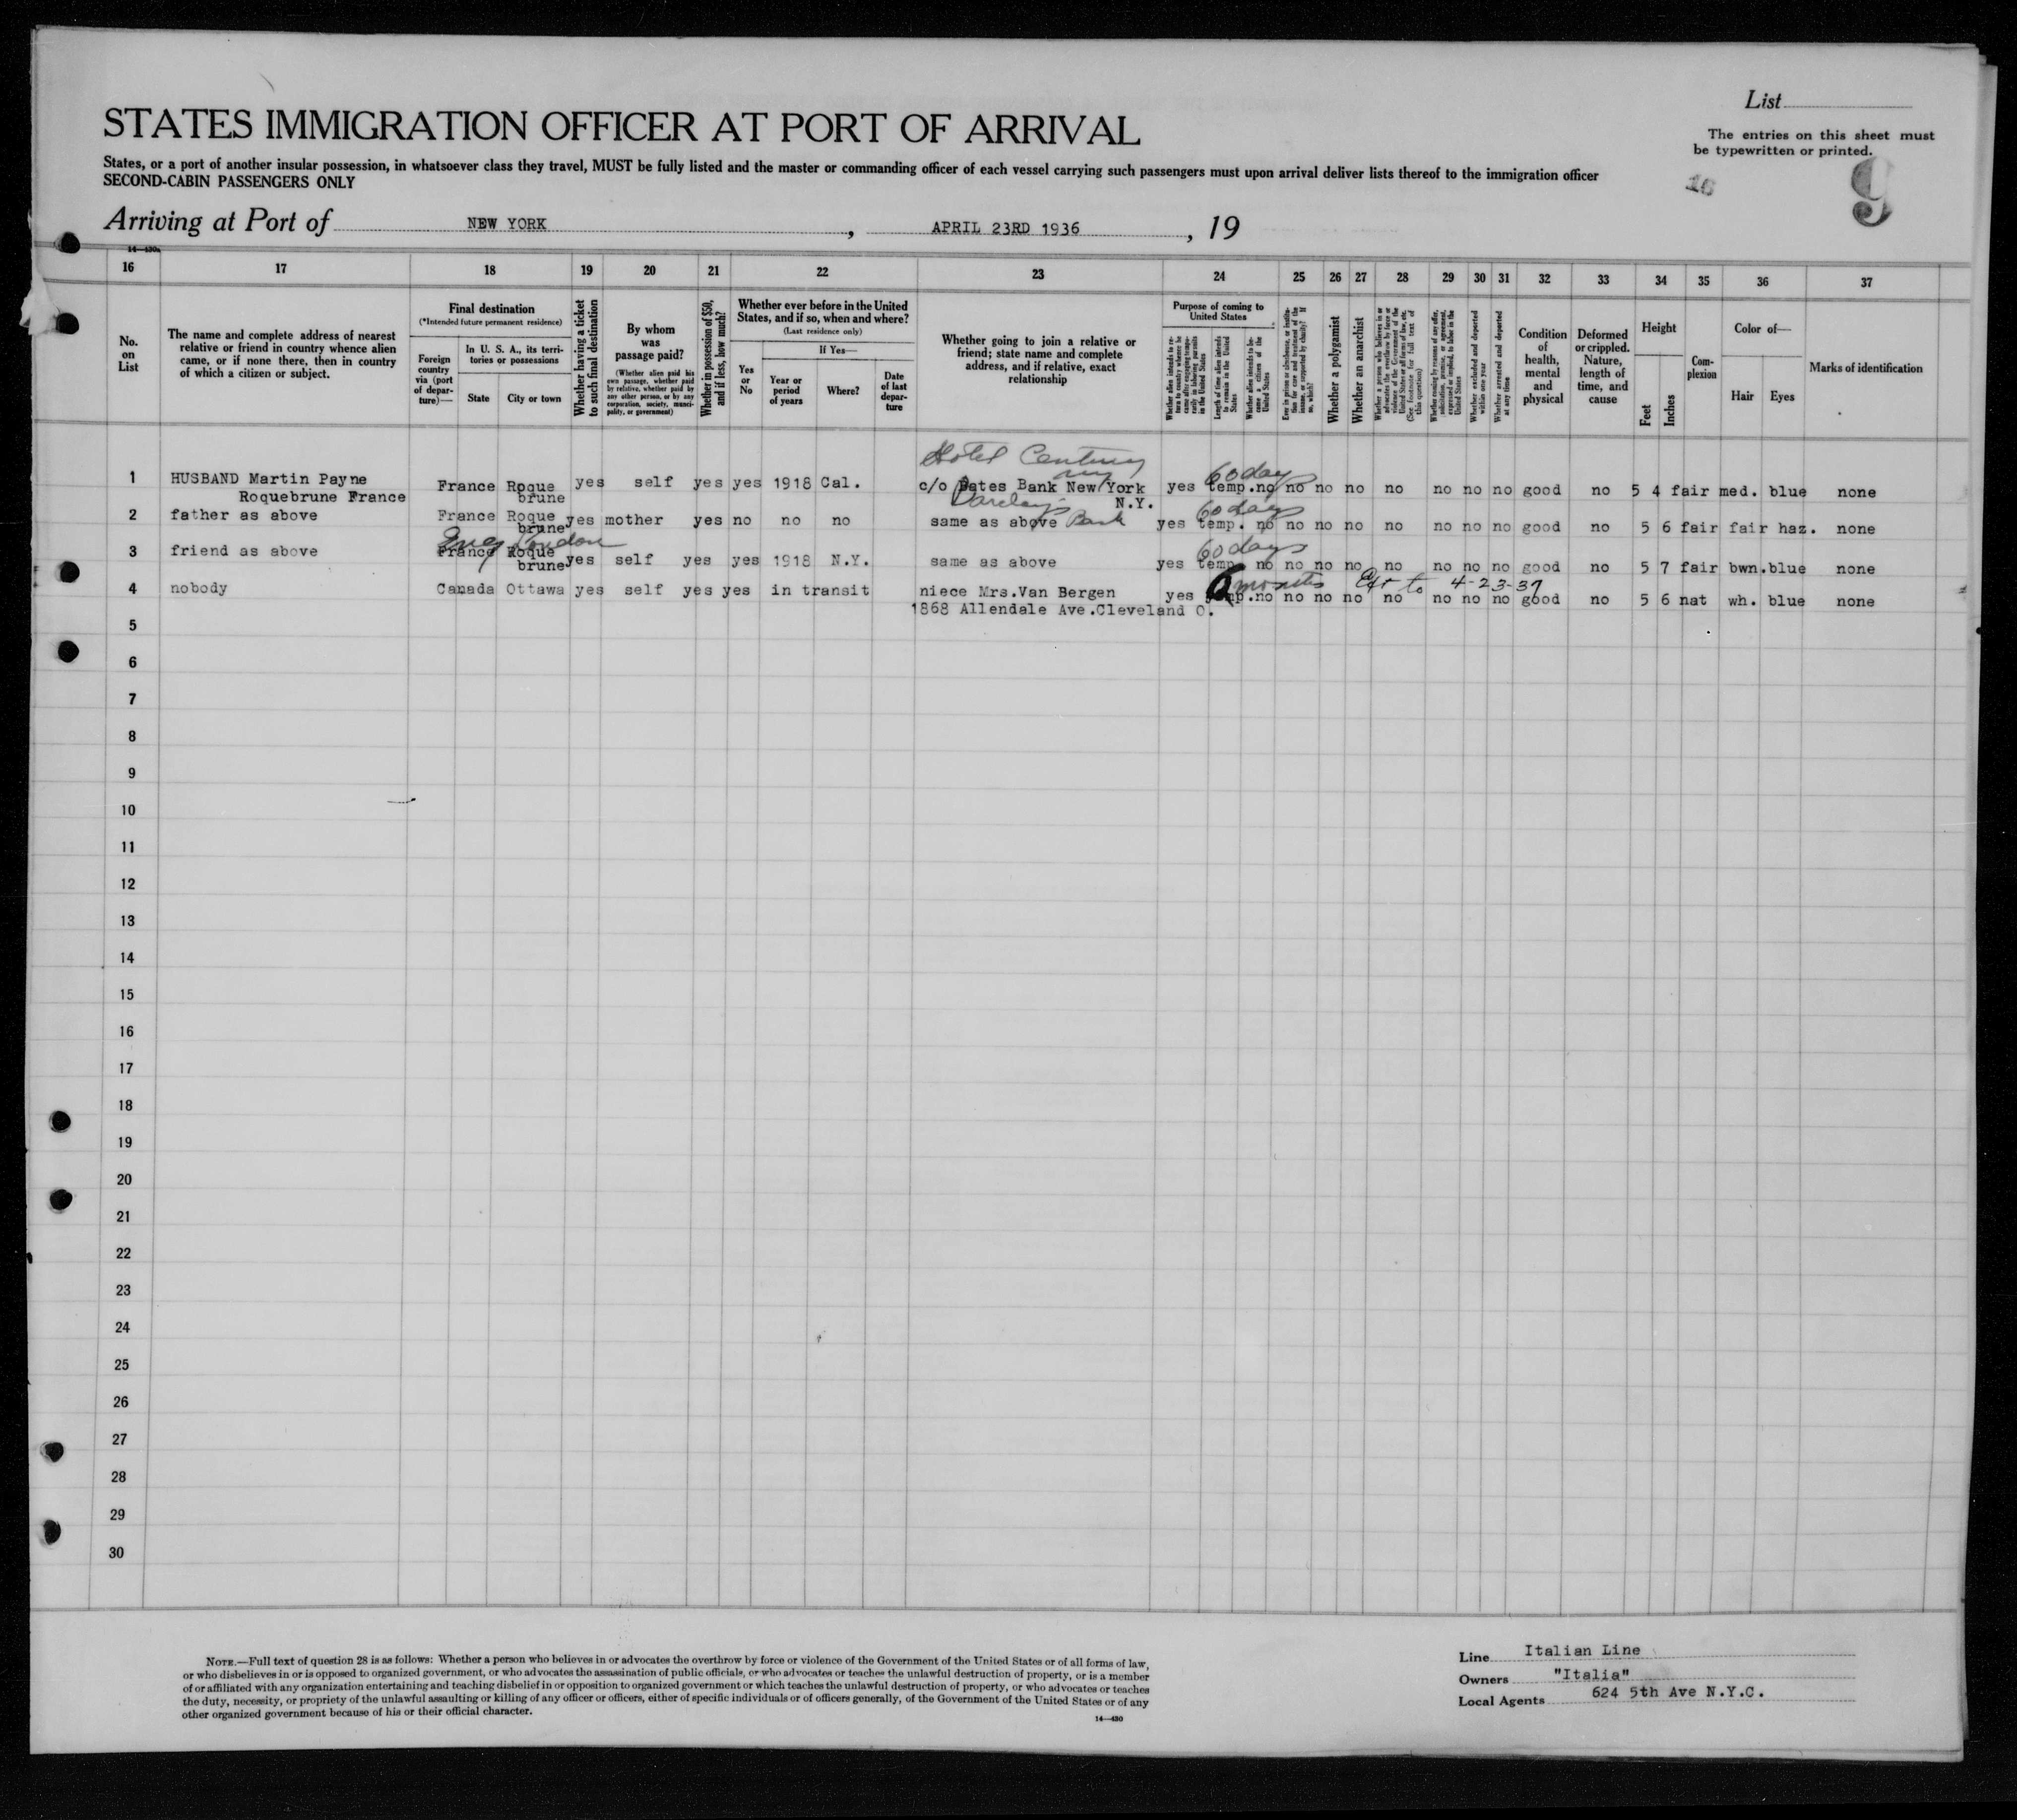 List
STATES IMMIGRATION OFFICER AT PORT OF ARRIVAL
The entries on this sheet must
be typewritten or printed.
States, or a port of another insular possession, in whatsoever class they travel, MUST be fully listed and the master or commanding officer of each vessel carrying such passengers must upon arrival deliver lists thereof to the immigration officer
SECOND-CABIN PASSENGERS ONLY
9
Arriving at Port of NEW YORK, APRIL 23RD 1936, 19
14—430a
16 17 18 19 20 21 22 23 24 25 26 27 28 29 30 31 32 33 34 35 36 37
No. on List
The name and complete address of nearest relative or friend in country whence alien came, or if none there, then in country of which a citizen or subject.
Final destination
(*Intended future permanent residence)
Foreign country via (port of departure)—
In U. S. A., its territories or possessions
State
City or town
Whether having a ticket to such final destination
By whom was passage paid?
(Whether alien paid his own passage, whether paid by relative, whether paid by any other person, or by any corporation, society, municipality, or government)
Whether in possession of $50, and if less, how much?
Whether ever before in the United States, and if so, when and where?
(Last residence only)
Yes or No
If Yes—
Year or period of years
Where?
Date of last departure
Whether going to join a relative or friend; state name and complete address, and if relative, exact relationship
Purpose of coming to United States
Length of time alien intends to remain in the United States
Whether alien intends to become a citizen of the United States
Whether a polygamist
Whether an anarchist
Whether excluded and deported within one year
Whether arrested and deported at any time
Condition of health, mental and physical
Deformed or crippled. Nature, length of time, and cause
Height
Feet
Inches
Complexion
Color of—
Hair
Eyes
Marks of identification
Hotel Century
60 days
1 HUSBAND Martin Payne France Roque yes self yes yes 1918 Cal. c/o Bates Bank New York yes temp. no no no no no no no no good no 5 4 fair med. blue none
Roquebrune France brune Barclays N.Y.
60 days
2 father as above France Roque yes mother yes no no no same as above Bank yes temp. no no no no no no no no good no 5 6 fair fair haz. none
brune
Eng London 60 days
3 friend as above France Roque yes self yes yes 1918 N.Y. same as above yes temp. no no no no no no no no good no 5 7 fair bwn. blue none
brune
6 months Ext to 4-23-37
4 nobody Canada Ottawa yes self yes yes in transit niece Mrs.Van Bergen yes no no no no no no no no good no 5 6 nat wh. blue none
1868 Allendale Ave.Cleveland O.
5
6
7
8
9
10
11
12
13
14
15
16
17
18
19
20
21
22
23
24
25
26
27
28
29
30
NOTE.—Full text of question 28 is as follows: Whether a person who believes in or advocates the overthrow by force or violence of the Government of the United States or of all forms of law,
or who disbelieves in or is opposed to organized government, or who advocates the assassination of public officials, or who advocates or teaches the unlawful destruction of property, or is a member
of or affiliated with any organization entertaining and teaching disbelief in or opposition to organized government or which teaches the unlawful destruction of property, or who advocates or teaches
the duty, necessity, or propriety of the unlawful assaulting or killing of any officer or officers, either of specific individuals or of officers generally, of the Government of the United States or of any
other organized government because of his or their official character.
14—430
Line Italian Line
Owners "Italia"
Local Agents 624 5th Ave N.Y.C.